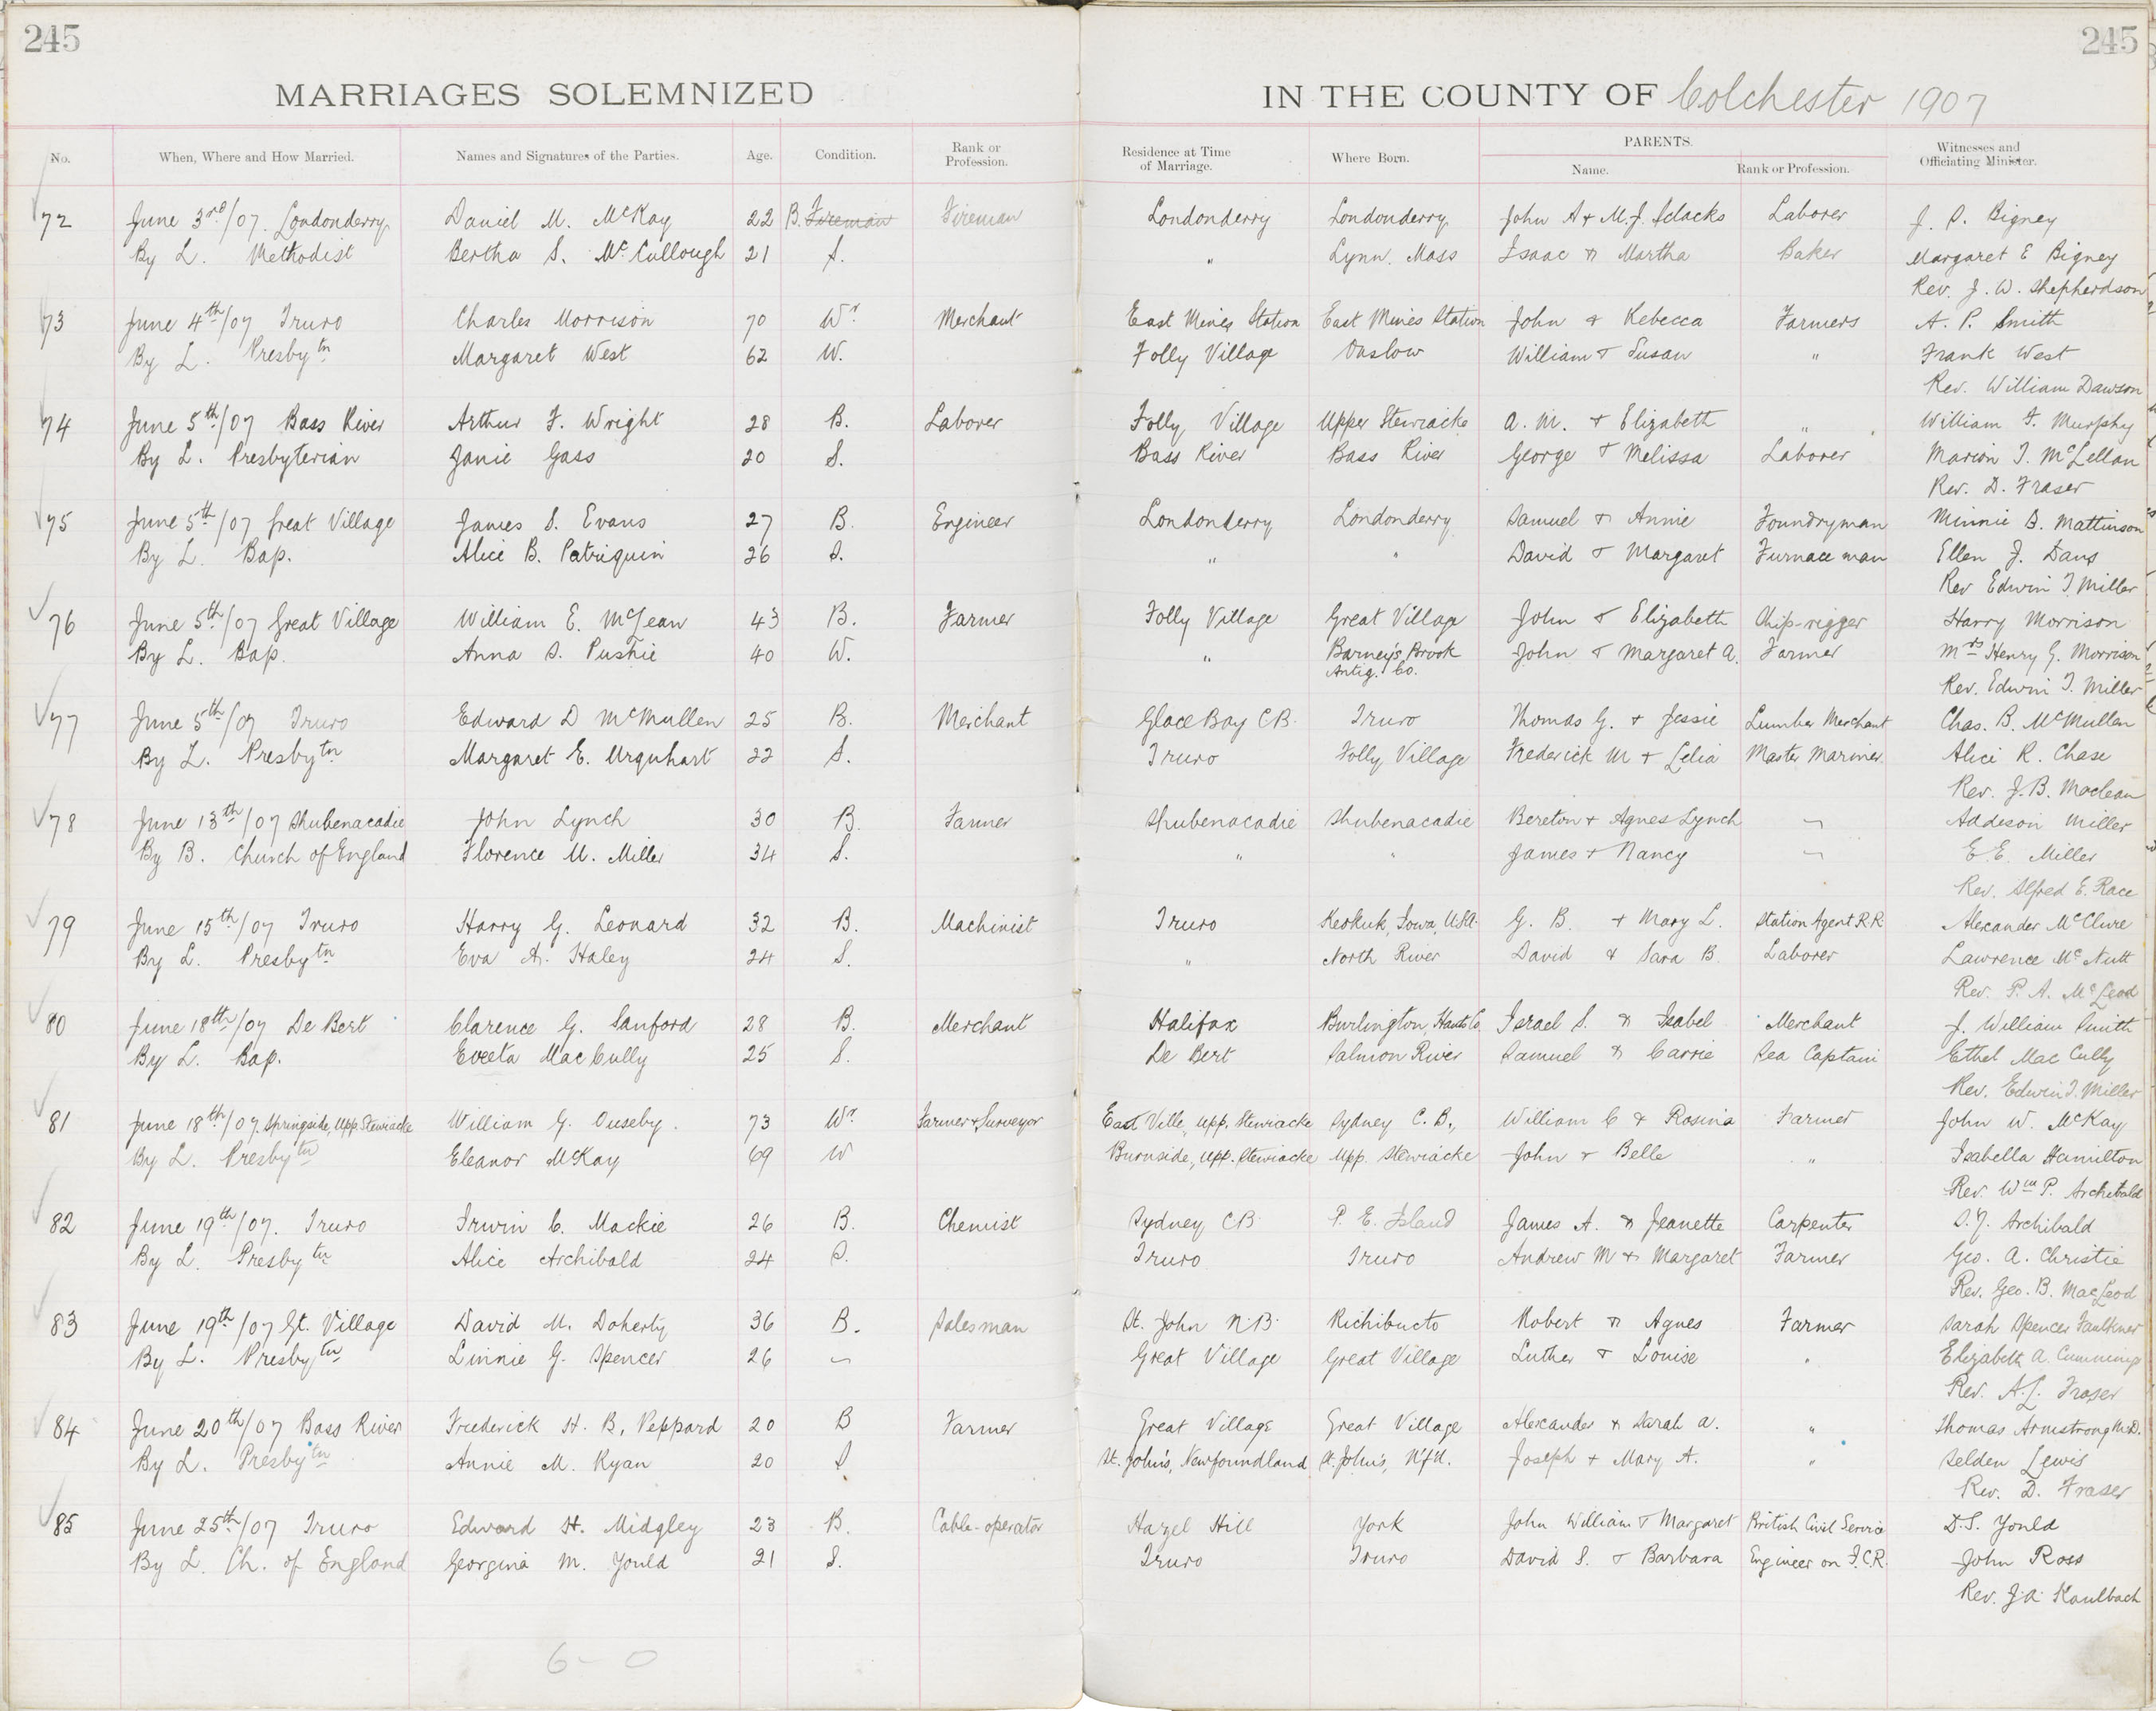 245 245
MARRIAGES SOLEMNIZED IN THE COUNTY OF Colchester 1907
No. When, Where and How Married. Names and Signatures of the Parties. Age. Condition. Rank or Profession. Residence at Time of Marriage. Where Born. PARENTS. Name. Rank or Profession. Witnesses and Officiating Minister.
72 June 3rd/07. Londonderry Daniel M. McKay 22 B. Fireman Fireman Londonderry Londonderry John A & M.J. Laborer J. S. Bigney
By L. Methodist Bertha S. McCullough 21 S. " Lynn. Mass Isaac & Martha Baker Margaret E Bigney
Rev. J. W. Shepherdson
73 June 4th/07 Truro Charles Morrison 70 Wr Merchant East Mines Station East Mines Station John & Rebecca Farmers A. P. Smith
By L. Presbytn Margaret West 62 W. Folly Village Onslow William & Susan " Frank West
Rev. William Dawson
74 June 5th/07 Bass River Arthur F. Wright 28 B. Laborer Folly Village Upper Stewiacke A. M. & Elizabeth " William F. Murphy
By L. Presbyterian Janie Gass 20 S. Bass River Bass River George & Melissa Laborer Marion T. McLellan
Rev. D. Fraser
75 June 5th/07 Great Village James S. Evans 27 B. Engineer Londonderry Londonderry Samuel & Annie Foundryman Minnie B. Mattinson
By L. Bap. Alice B. Patriquin 26 S. " " David & Margaret Furnace man Ellen J. Davis
Rev Edwin T. Miller
76 June 5th/07 Great Village William E. McLean 43 B. Farmer Folly Village Great Village John & Elizabeth Ship-rigger Harry Morrison
By L. Bap. Anna S. Pushie 40 W. " Barney's Brook Antig. Co. John & Margaret A. Farmer Mrs Henry G. Morrison
Rev. Edwin T. Miller
77 June 5th/07 Truro Edward D McMullen 25 B. Merchant Glace Bay C.B. Truro Thomas G. & Jessie Lumber Merchant Chas. B. McMullen
By L. Presbytn Margaret E. Urquhart 22 S. Truro Folly Village Frederick M & Lelia Master Mariner Alice R. Chase
Rev. J. B. Maclean
78 June 13th/07 Shubenacadie John Lynch 30 B. Farmer Shubenacadie Shubenacadie Bereton & Agnes Lynch Addeson Miller
By B. Church of England Florence M. Miller 34 S. " " James & Nancy E. E. Miller
Rev. Alfred E. Race
79 June 15th/07 Truro Harry G. Leonard 32 B. Machinist Truro Keokuk, Iowa, U.S.A. G. B. & Mary L. Station Agent R.R Alexander McClure
By L. Presbytn Eva A. Haley 24 S. " North River David & Sara B. Laborer Lawrence McNutt
Rev. P. A. McLeod
80 June 18th/07 De Bert Clarence G. Sanford 28 B. Merchant Halifax Burlington, Hants Co. Israel S. & Isabel Merchant J. William Smith
By L. Bap. Eveeta MacCully 25 S. De Bert Salmon River Samuel & Carrie Sea Captain Ethel MacCully
Rev. Edwin T. Miller
81 June 18th/07. Springside, Upp. Stewiacke William G. Ouseby. 73 Wr Farmer & Surveyor East Ville, Upp. Stewiacke Sydney C. B., William C & Rosina Farmer John W. McKay
By L. Presbytn Eleanor McKay 69 W Burnside, Upp. Stewiacke Upp. Stewiacke John & Belle " Isabella Hamilton
Rev. Wm P. Archibald
82 June 19th/07. Truro Irwin C. Mackie 26 B. Chemist Sydney C.B. P. E. Island James A. & Jeanette Carpenter S. Y. Archibald
By L. Presbytn Alice Archibald 24 S. Truro Truro Andrew M & Margaret Farmer Geo. A. Christie
Rev. Geo. B. MacLeod
83 June 19th/07 Gt. Village David M. Doherty 36 B. Salesman St. John N.B. Richibucto Robert & Agnes Farmer Sarah Spencer Faulkner
By L. Presbytn Linnie G. Spencer 26 Great Village Great Village Luther & Louise " Elizabeth A. Cummings
Rev. A. L. Fraser
84 June 20th/07 Bass River Frederick H. B. Peppard 20 B Farmer Great Village Great Village Alexander & Sarah A. " Thomas Armstrong M.D.
By L. Presbytn Annie M. Ryan 20 S St. John's, Newfoundland St. John's, N'f'd. Joseph & Mary A. " Selden Lewis
Rev. D. Fraser
85 June 25th/07 Truro Edward H. Midgley 23 B. Cable-operator Hazel Hill York John William & Margaret British Civil Service D. S. Yould
By L. Ch. of England Georgina M. Yould 21 S. Truro Truro David S. & Barbara Engineer on I.C.R. John Ross
Rev. J. A. Kaulbach
6 - 0